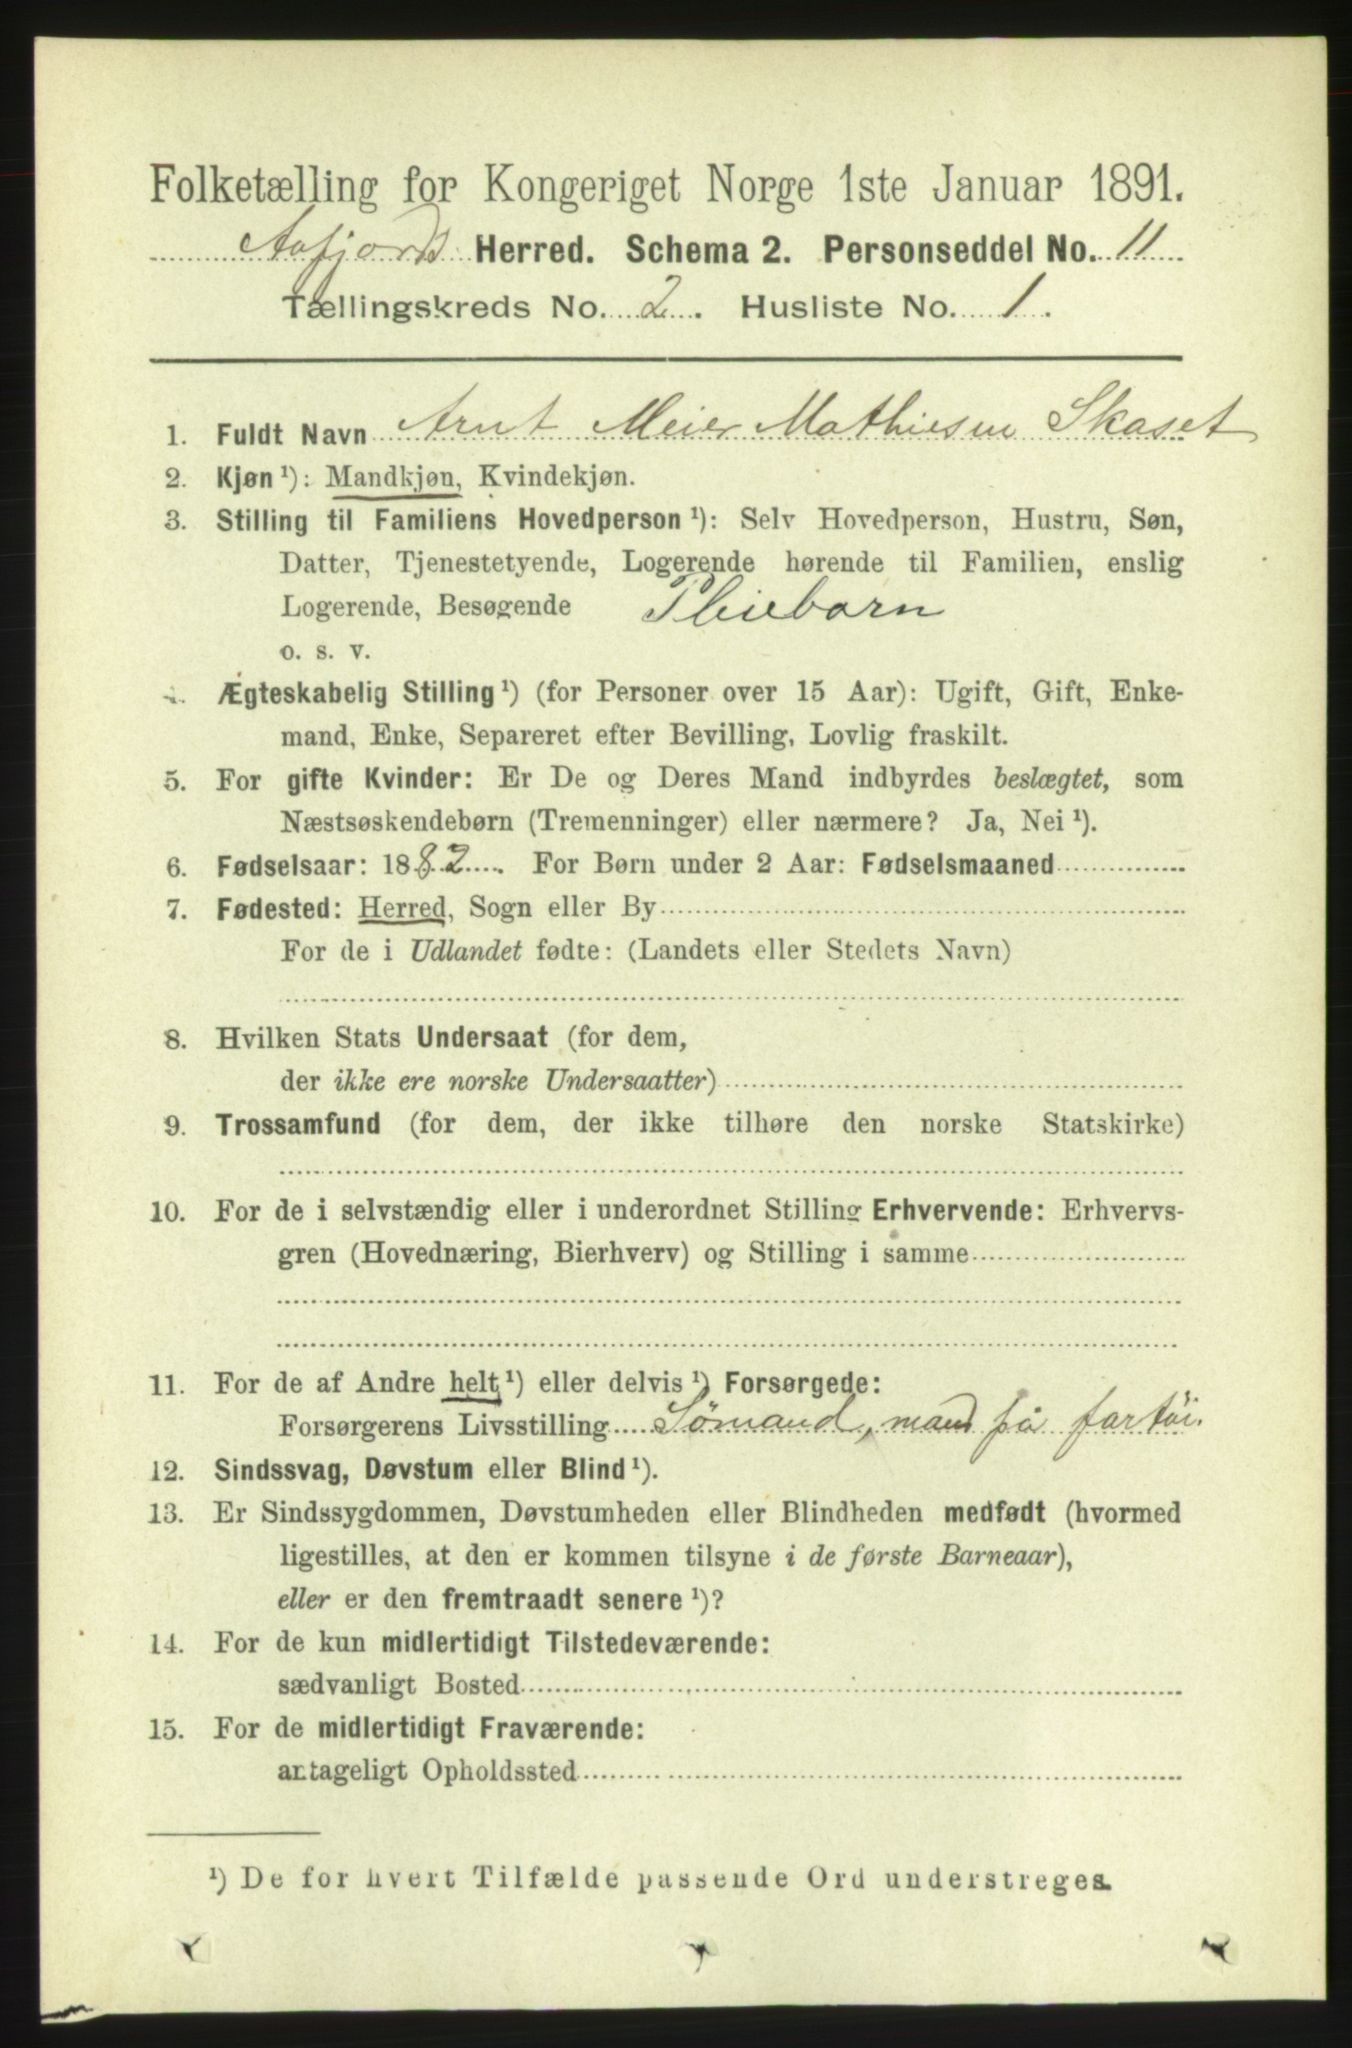 Folketælling for Kongeriget Norge 1ste Januar 1891.
Aafjords Herred. Schema 2. Personseddel No. 11
Tællingskreds No. 2. Husliste No. 1.
1. Fuldt Navn Arnt Meier Mathiesen Skaset
2. Kjøn ¹): Mandkjøn, Kvindekjøn.
3. Stilling til Familiens Hovedperson ¹): Selv Hovedperson, Hustru, Søn,
Datter, Tjenestetyende, Logerende hørende til Familien, enslig
Logerende, Besøgende Pleiebarn
o. s. v.
4. Ægteskabelig Stilling ¹) (for Personer over 15 Aar): Ugift, Gift, Enke-
mand, Enke, Separeret efter Bevilling, Lovlig fraskilt.
5. For gifte Kvinder: Er De og Deres Mand indbyrdes beslægtet, som
Næstsøskendebørn (Tremenninger) eller nærmere? Ja, Nei ¹).
6. Fødselsaar: 1882. For Børn under 2 Aar: Fødselsmaaned
7. Fødested: Herred, Sogn eller By
For de i Udlandet fødte: (Landets eller Stedets Navn)
8. Hvilken Stats Undersaat (for dem,
der ikke ere norske Undersaatter)
9. Trossamfund (for dem, der ikke tilhøre den norske Statskirke)
10. For de i selvstændig eller i underordnet Stilling Erhvervende: Erhvervs-
gren (Hovednæring, Bierhverv) og Stilling i samme
11. For de af Andre helt ¹) eller delvis ¹) Forsørgede:
Forsørgerens Livsstilling Sømand, mand på fartøi.
12. Sindssvag, Døvstum eller Blind ¹).
13. Er Sindssygdommen, Døvstumheden eller Blindheden medfødt (hvormed
ligestilles, at den er kommen tilsyne i de første Barneaar),
eller er den fremtraadt senere ¹)?
14. For de kun midlertidigt Tilstedeværende:
sædvanligt Bosted
15. For de midlertidigt Fraværende:
antageligt Opholdssted
¹) De for hvert Tilfælde passende Ord understreges.